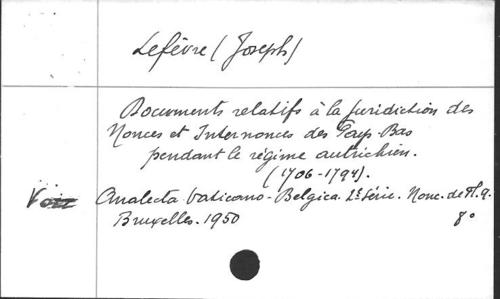 Lefèvre (Joseph)
Documents relatifs à la Juridiction des
Nonces et Internonces des Pays-Bas
pendant le régime autrichien.
(1706-1794).
Voir Analecta Vaticano-Belgica 2e Série. Nonc. de Fl. 9.
Bruxelles. 1950 8°